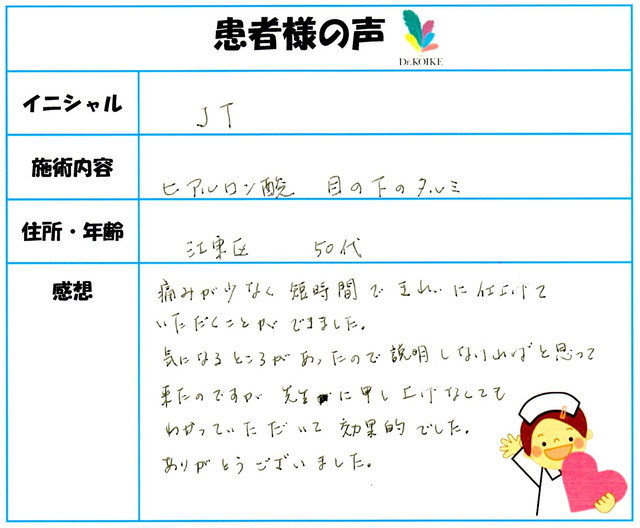 患者様の声
Dr.KOIKE
イニシャル
JT
施術内容
ヒアルロン酸 目の下のタルミ
住所・年齢
江東区 50代
感想
痛みが少なく短時間できれいに仕上げて
いただくことができました。
気になるところがあったので説明しなければと思って
来たのですが先生に申し上げなくても
わかっていただいて効果的でした。
ありがとうございました。